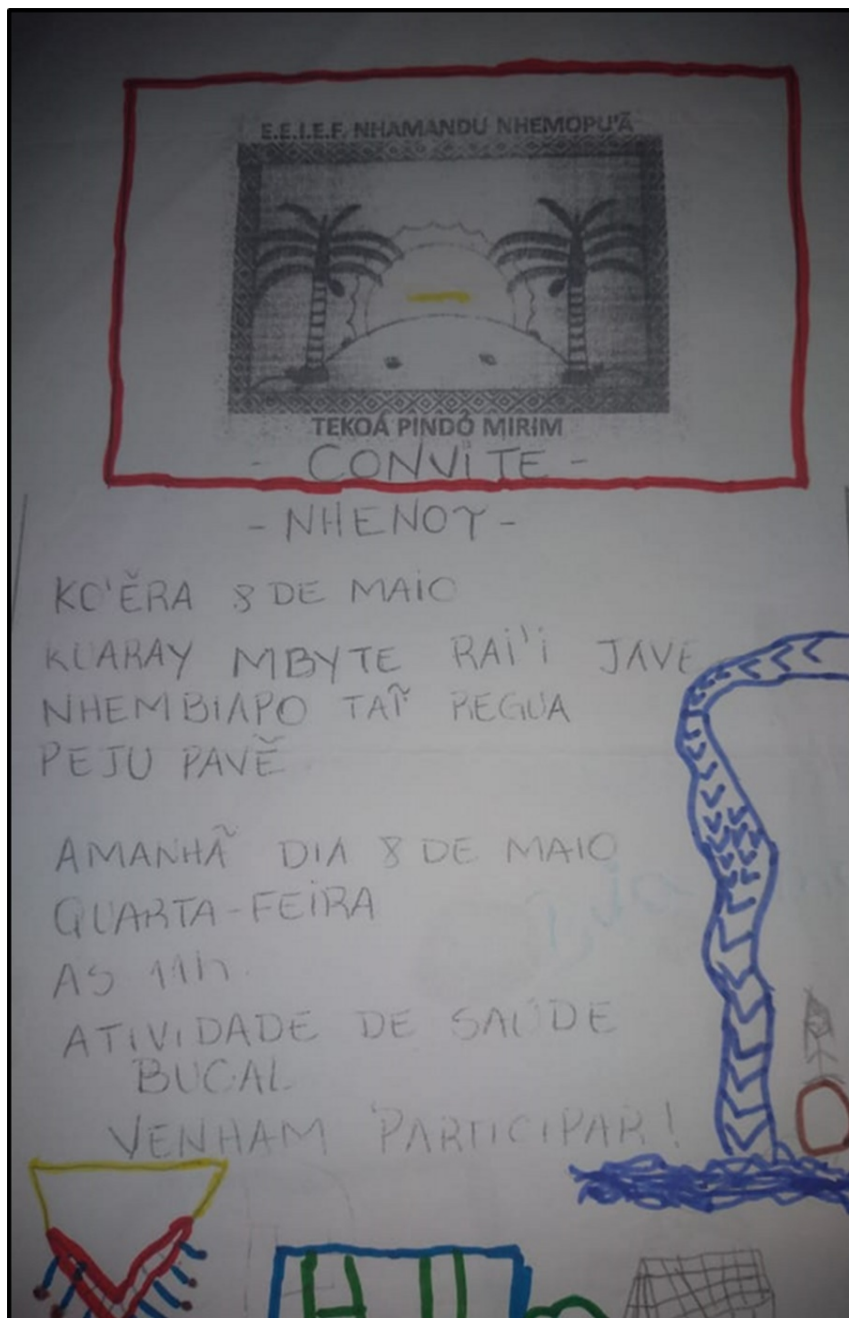 E.E.I.E.F. NHAMANDU NHEMOPU'Ã
TEKOÁ PINDÓ MIRIM
- CONVITE -
- NHENOỸ -
KO'ẼRA 8 DE MAIO
KUARAY MBYTE RAI'I JAVE
NHEMBIAPO TAĨ REGUA
PEJU PAVẼ
AMANHÃ DIA 8 DE MAIO
QUARTA-FEIRA
AS 11h
ATIVIDADE DE SAÚDE
BUCAL
VENHAM PARTICIPAR!